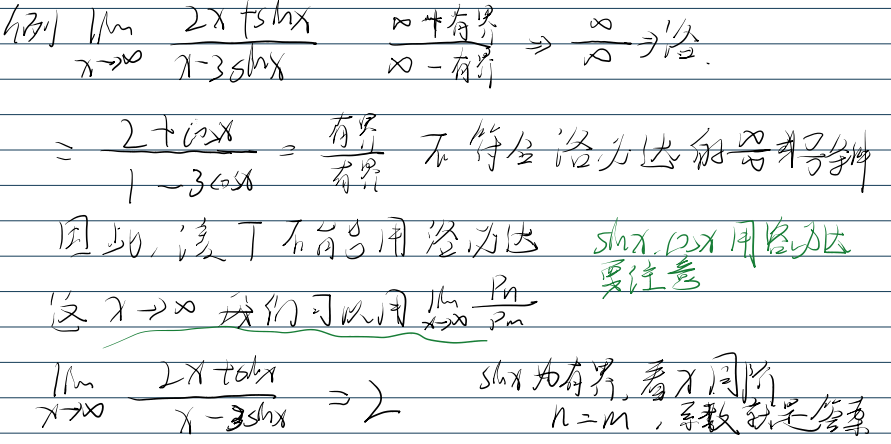 例 lim x→∞ (2x+sinx)/(x-3sinx) (∞+有界)/(∞-有界) ⇒ ∞/∞ ⇒ 洛.
= (2+cosx)/(1-3cosx) = 有界/有界 不符合洛必达的 ∞/∞ 或 0/0 条件
因此,该丁不能用洛必达 sinx.cosx用洛必达
要注意
这 x→∞ 我们可以用 lim x→∞ Pn/Pm
lim x→∞ (2x+sinx)/(x-3sinx) = 2 sinx为有界,看x同阶
n=m,系数就是答案